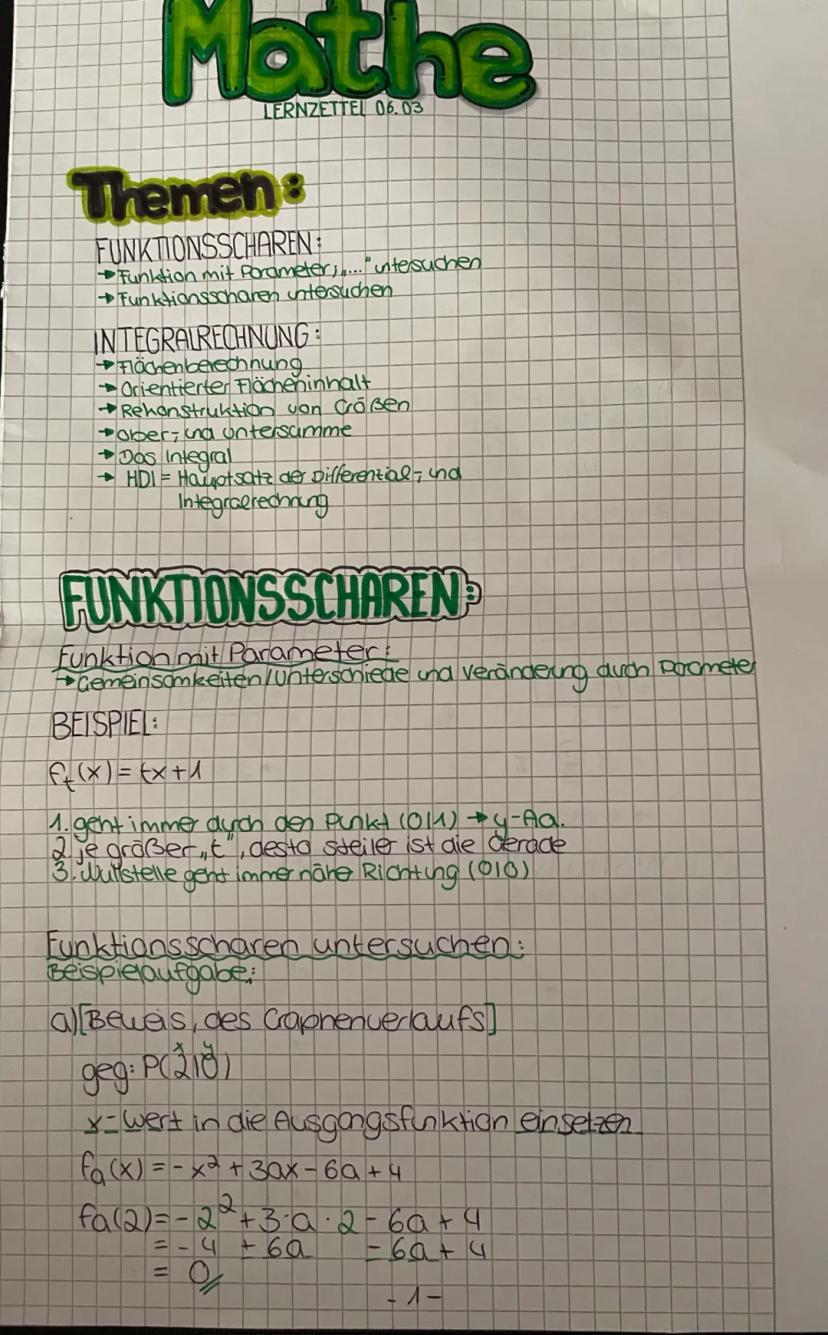 Mathe
LERNZETTEL 06.03
Themen:
FUNKTIONSSCHAREN:
→ Funktion mit Parameter, „..." untersuchen
→ Funktionsscharen untersuchen
INTEGRALRECHNUNG:
→ Flächenberechnung
→ Orientierter Flächeninhalt
→ Rekonstruktion von Größen
→ Ober- und Untersumme
→ Das Integral
→ HDI = Hauptsatz der Differential- und
Integralrechnung
FUNKTIONSSCHAREN:
Funktion mit Parameter:
→ Gemeinsamkeiten/Unterschiede und Veränderung durch Parameter
BEISPIEL:
fₜ(x) = tx + 1
1. geht immer durch den Punkt (0|1) → y-Aa.
2. je größer „t", desto steiler ist die Gerade
3. Nullstelle geht immer nähe Richtung (0|0)
Funktionsscharen untersuchen:
Beispielaufgabe:
a) [Beweis, des Graphenverlaufs]
x y
geg: P(2|0)
x-Wert in die Ausgangsfunktion einsetzen
fa(x) = -x² + 3ax - 6a + 4
fa(2) = -2² + 3·a·2 - 6a + 4
= -4 + 6a - 6a + 4
= 0
-1-